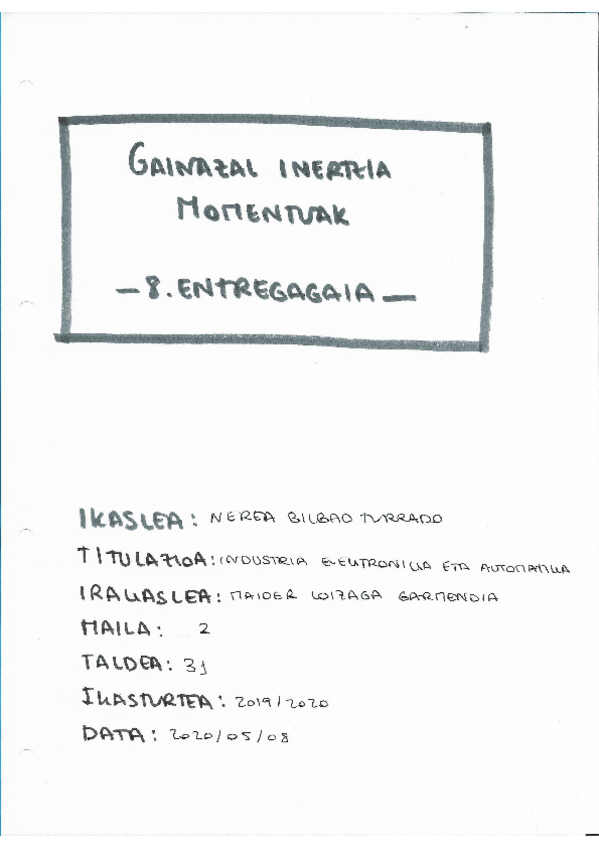 GAINAZAL INERTZIA
MOMENTUAK
- 8. ENTREGAGAIA -
IKASLEA: NEREA BILBAO TURRADO
TITULAZIOA: INDUSTRIA ELEKTRONIKA ETA AUTOMATIKA
IRAKASLEA: MAIDER LOIZAGA GARMENDIA
MAILA: 2
TALDEA: 31
IKASTURTEA: 2019/2020
DATA: 2020/05/08